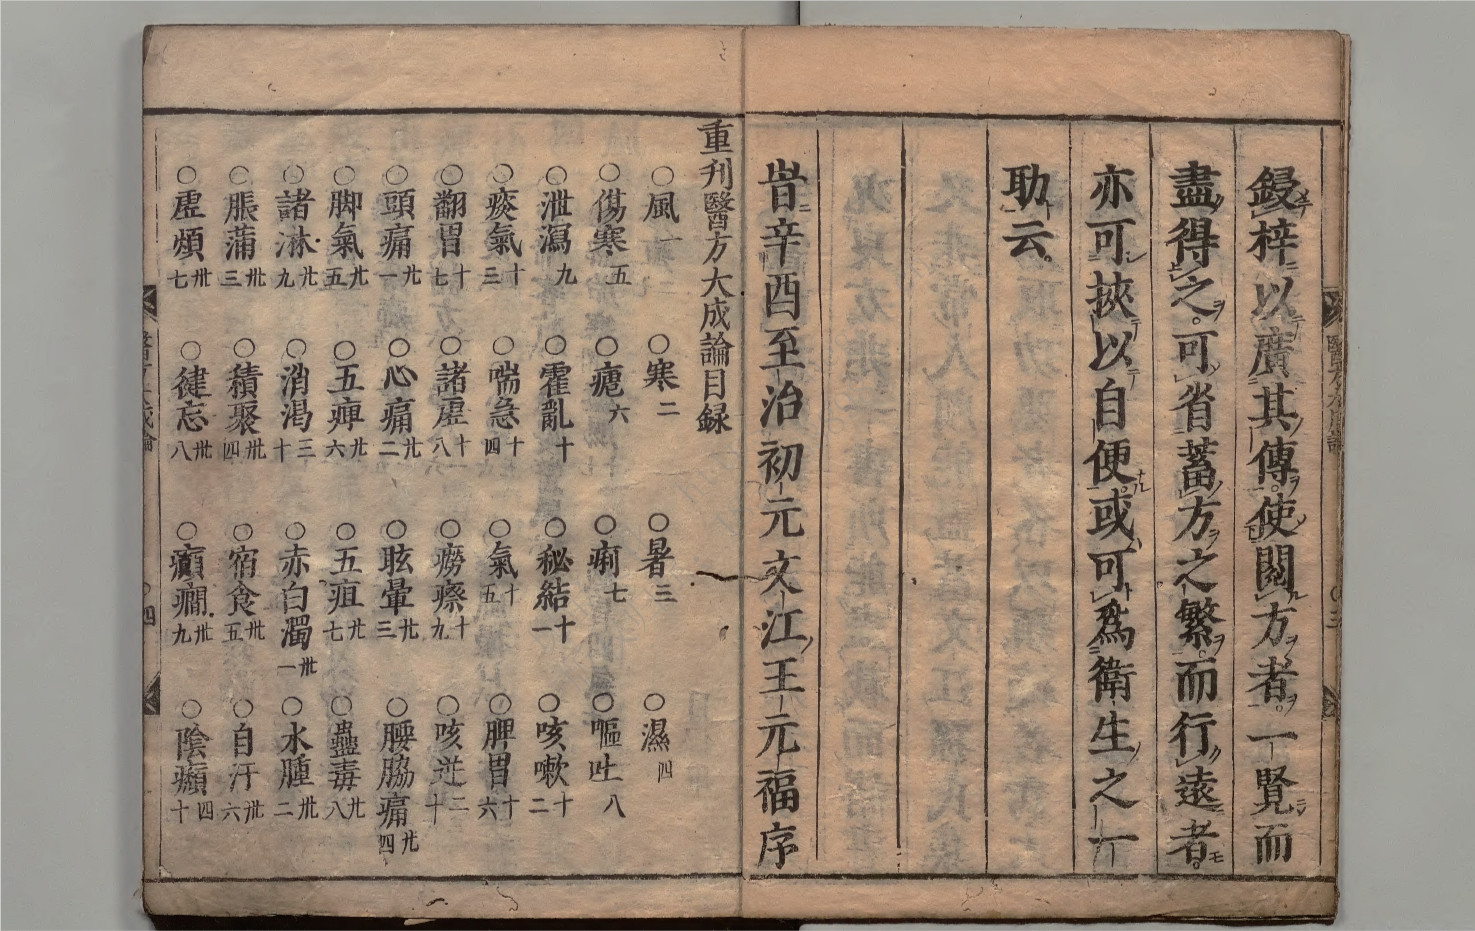 鋟梓以廣其傳使閱方者一覽而
盡得之可省蓄方之繁而行遠者
亦可挾以自便或可爲衛生之一
助云
旹辛酉至治初元文江王元福序
重刋醫方大成論目録
○風一 ○寒二 ○暑三 ○濕四
○傷寒五 ○瘧六 ○痢七 ○嘔吐八
○泄瀉九 ○霍亂十 ○秘結十一 ○咳嗽十二
○痰氣十三 ○喘急十四 ○氣十五 ○脾胃十六
○翻胃十七 ○諸虛十八 ○癆瘵十九 ○咳逆二十
○頭痛廿一 ○心痛廿二 ○眩暈廿三 ○腰脇痛廿四
○脚氣廿五 ○五痺廿六 ○五疸廿七 ○蠱毒廿八
○諸淋廿九 ○消渇三十 ○赤白濁卅一 ○水腫卅二
○脹蒲卅三 ○積聚卅四 ○宿食卅五 ○自汗卅六
○虛煩卅七 ○健忘卅八 ○癲癇卅九 ○陰㿗四十
醫方大成論 ○四